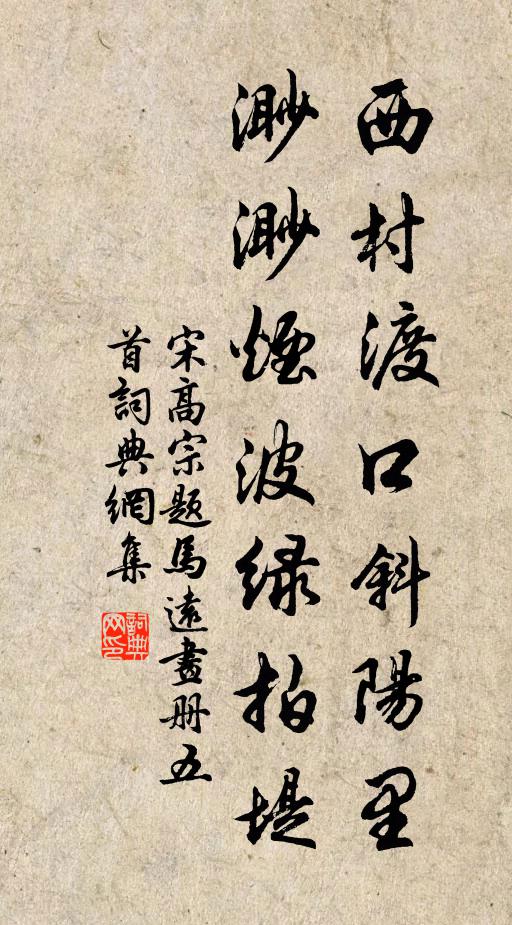 西村渡口斜陽里
渺渺煙波綠拍堤
宋高宗題馬遠畫册五
首詞典網集
詞典网印